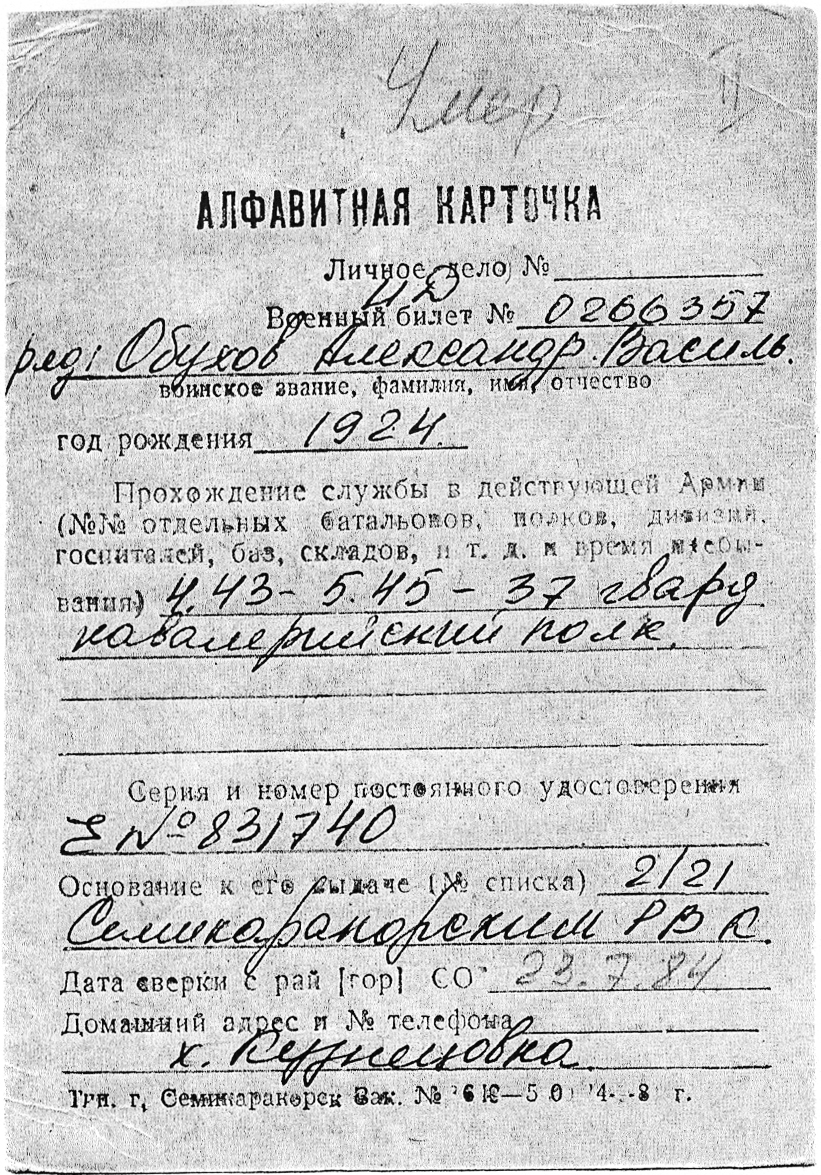 Умер
АЛФАВИТНАЯ КАРТОЧКА
Личное дело №
НД
Военный билет № 0266357
ряд: Обухов Александр Василь.
воинское звание, фамилия, имя, отчество
год рождения 1924
Прохождение службы в действующей Армии
(№№ отдельных батальонов, полков, дивизий,
госпиталей, баз, складов, и т. д. и время пребы-
вания) 4.43 - 5.45 - 37 гвард
кавалерийский полк.
Серия и номер постоянного удостоверения
Е № 831740
Основание к его выдаче (№ списка) 2/21
Семикаракорским РВК.
Дата сверки с рай [гор] СО 23.7.84
Домашний адрес и № телефона
х. Кузнецовка.
Тип. г, Семикаракорск Зак. №